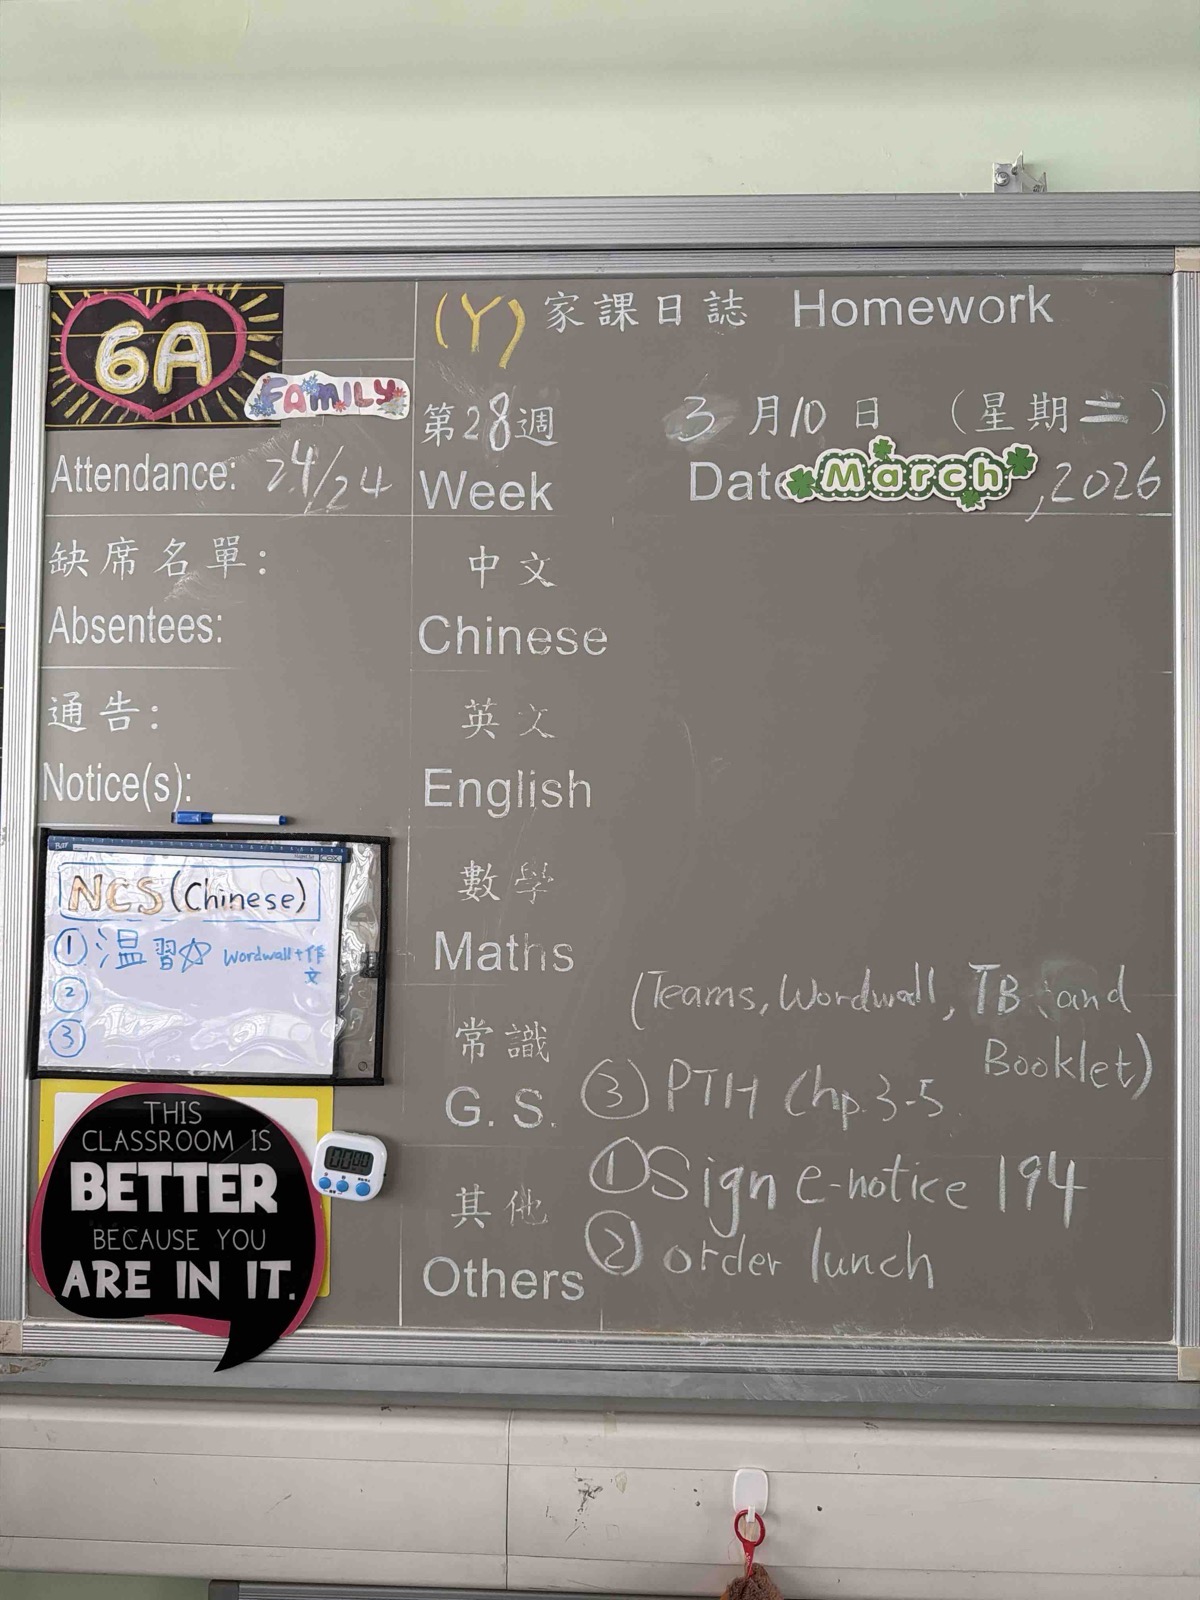 6A
FAMILY
Attendance: 24/24
缺席名單:
Absentees:
通告:
Notice(s):
NCS (Chinese)
① 温習☆ Wordwall+作文
②
③
THIS
CLASSROOM IS
BETTER
BECAUSE YOU
ARE IN IT.
(Y) 家課日誌 Homework
第28週 3月10日 (星期二)
Week Date March, 2026
中文
Chinese
英文
English
數學
Maths
常識
G. S.
(Teams, Wordwall, TB and
Booklet)
③ PTH Chp.3-5
其他
Others
① Sign e-notice 194
② order lunch